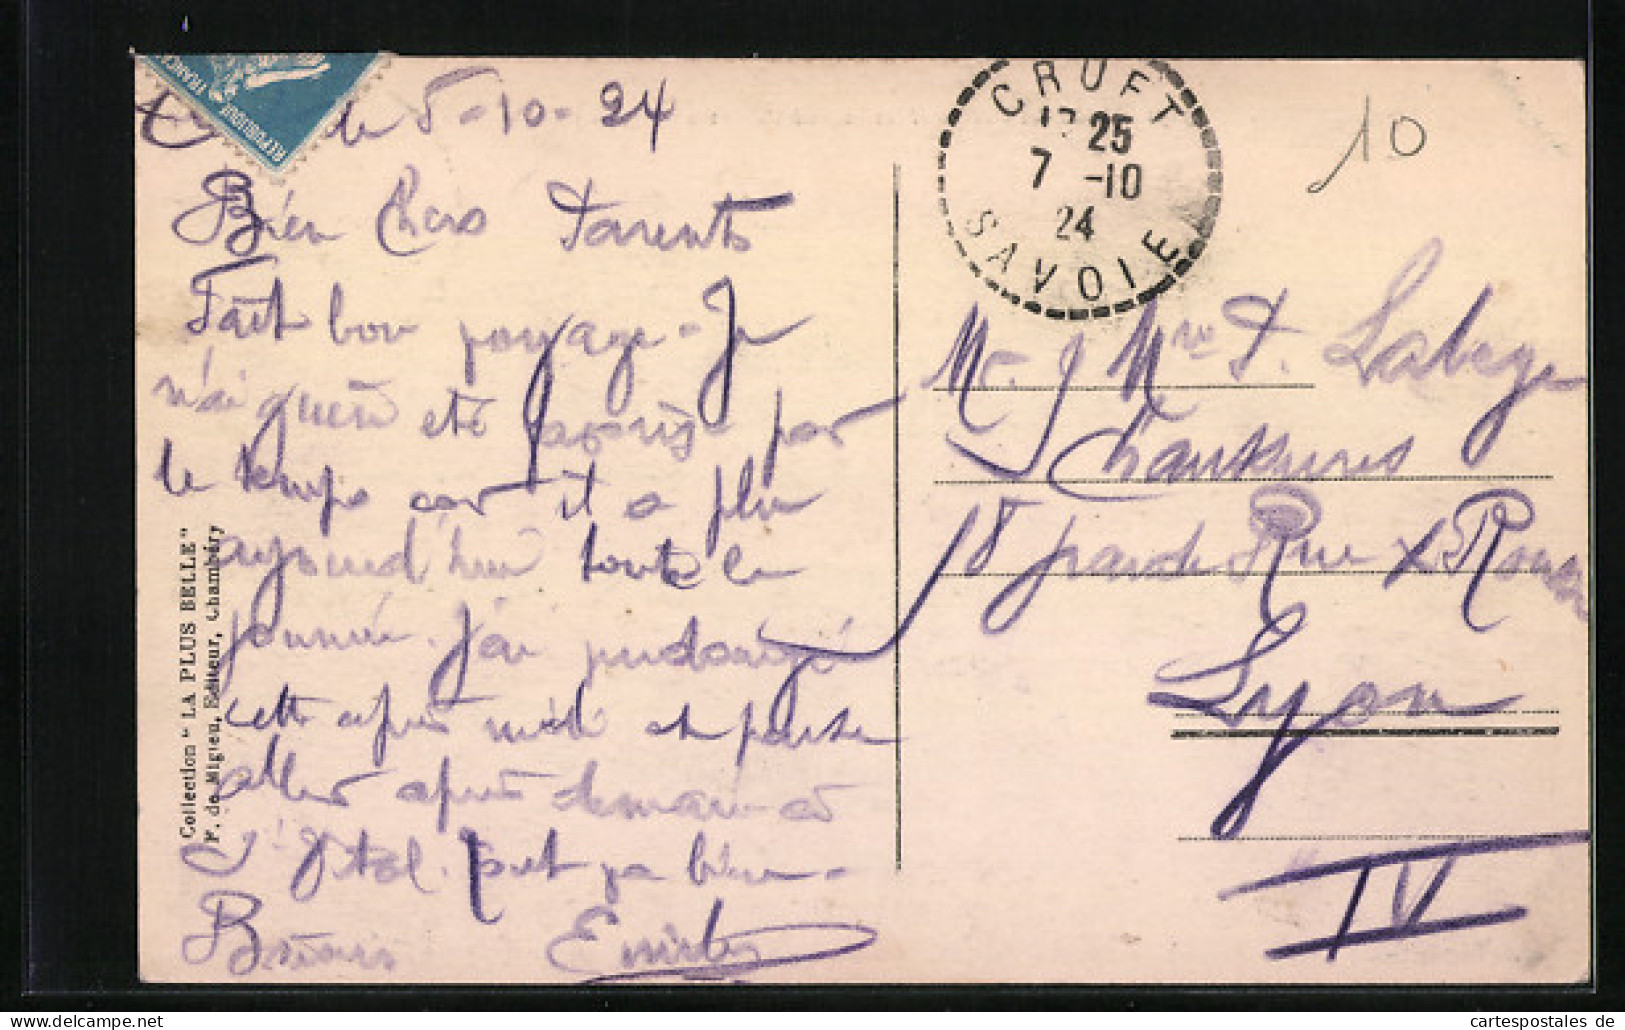 RÉPUBLIQUE FRANÇ
5-10-24
Bien Chers Parents
Fait bon voyage - Je
n'ai guère été favorisé par
le temps car il a plu
aujourd'hui toute la
journée. J'ai prolongé
cette après midi et pense
aller après demain à
Tout va bien -
Baisers
Collection "LA PLUS BELLE"
F. de Migieu, Editeur, Chambéry
CRUET
25
7 -10
24
SAVOIE
10
Mr. & Mme
Chaussures
18 grande Rue X Rousse
Lyon
IV
cartespostales de